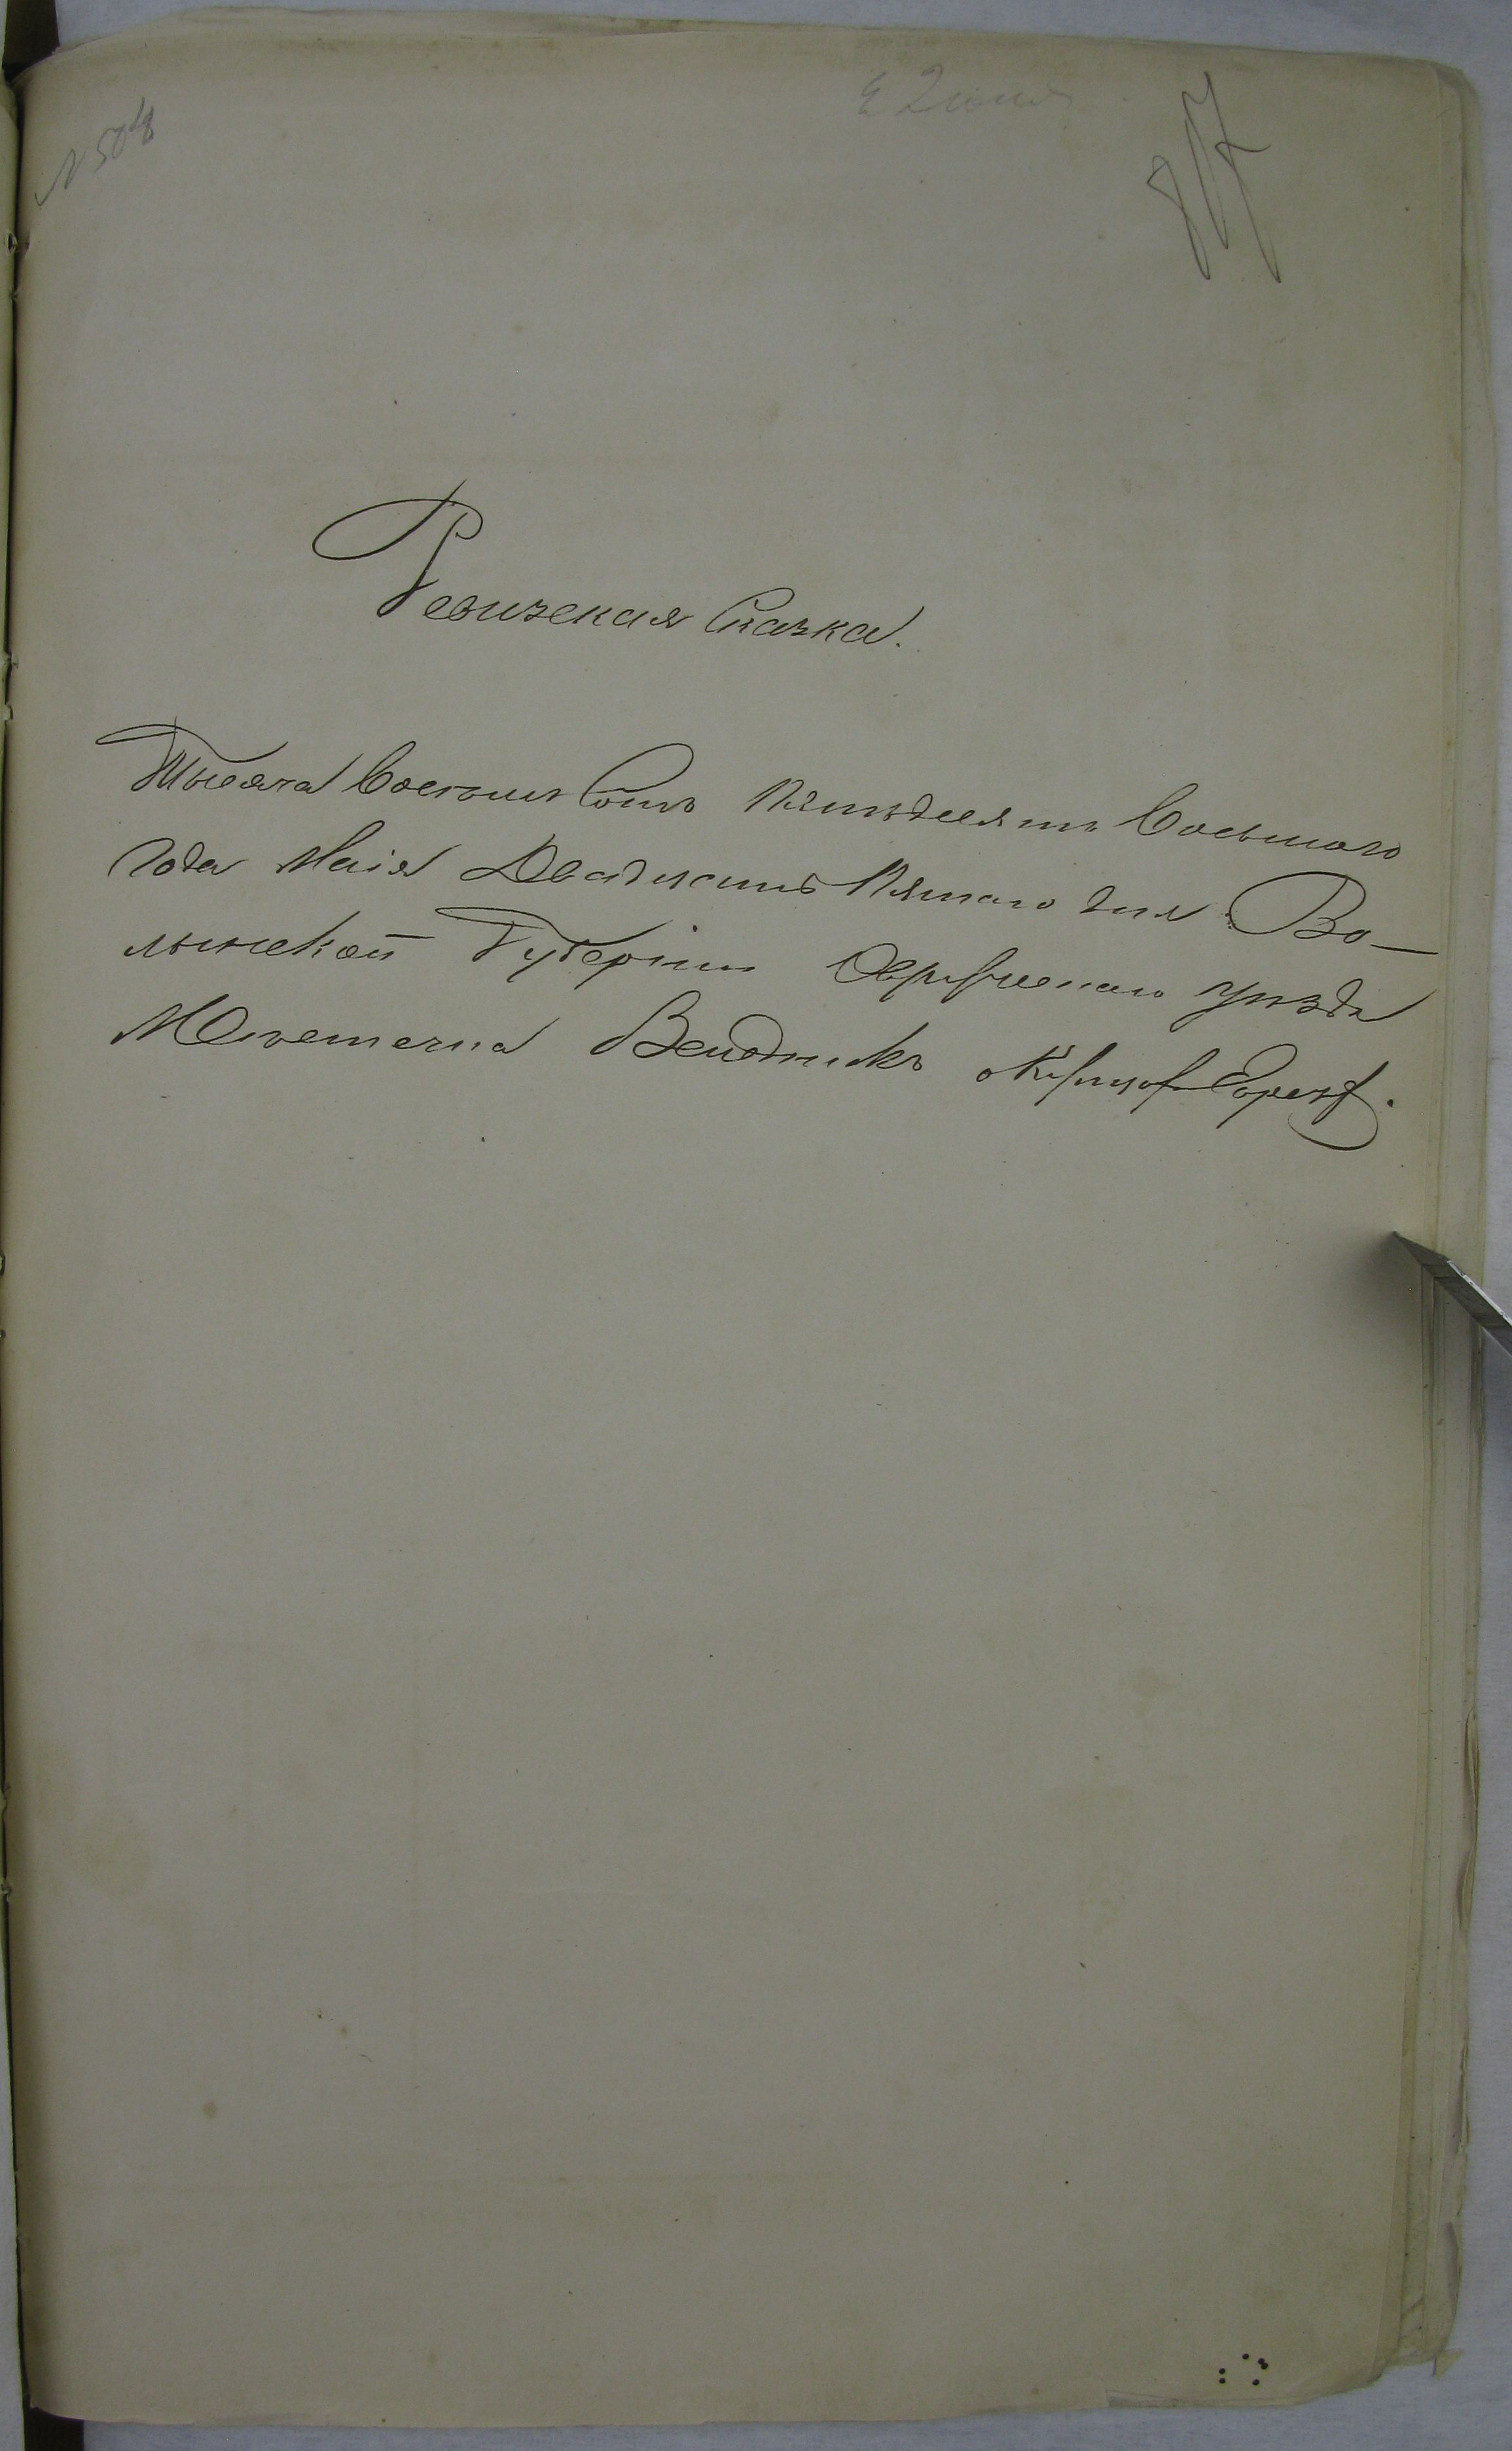 N 504
817
Ревизская Сказка.
Тысяча Восемь Сотъ Пятьдесятъ Восьмого
Года Маія Двадцать Пятаго дня Во—
лынской Губерніи Овручскаго уѣзда
Местечка Веледникъ о Евреях.